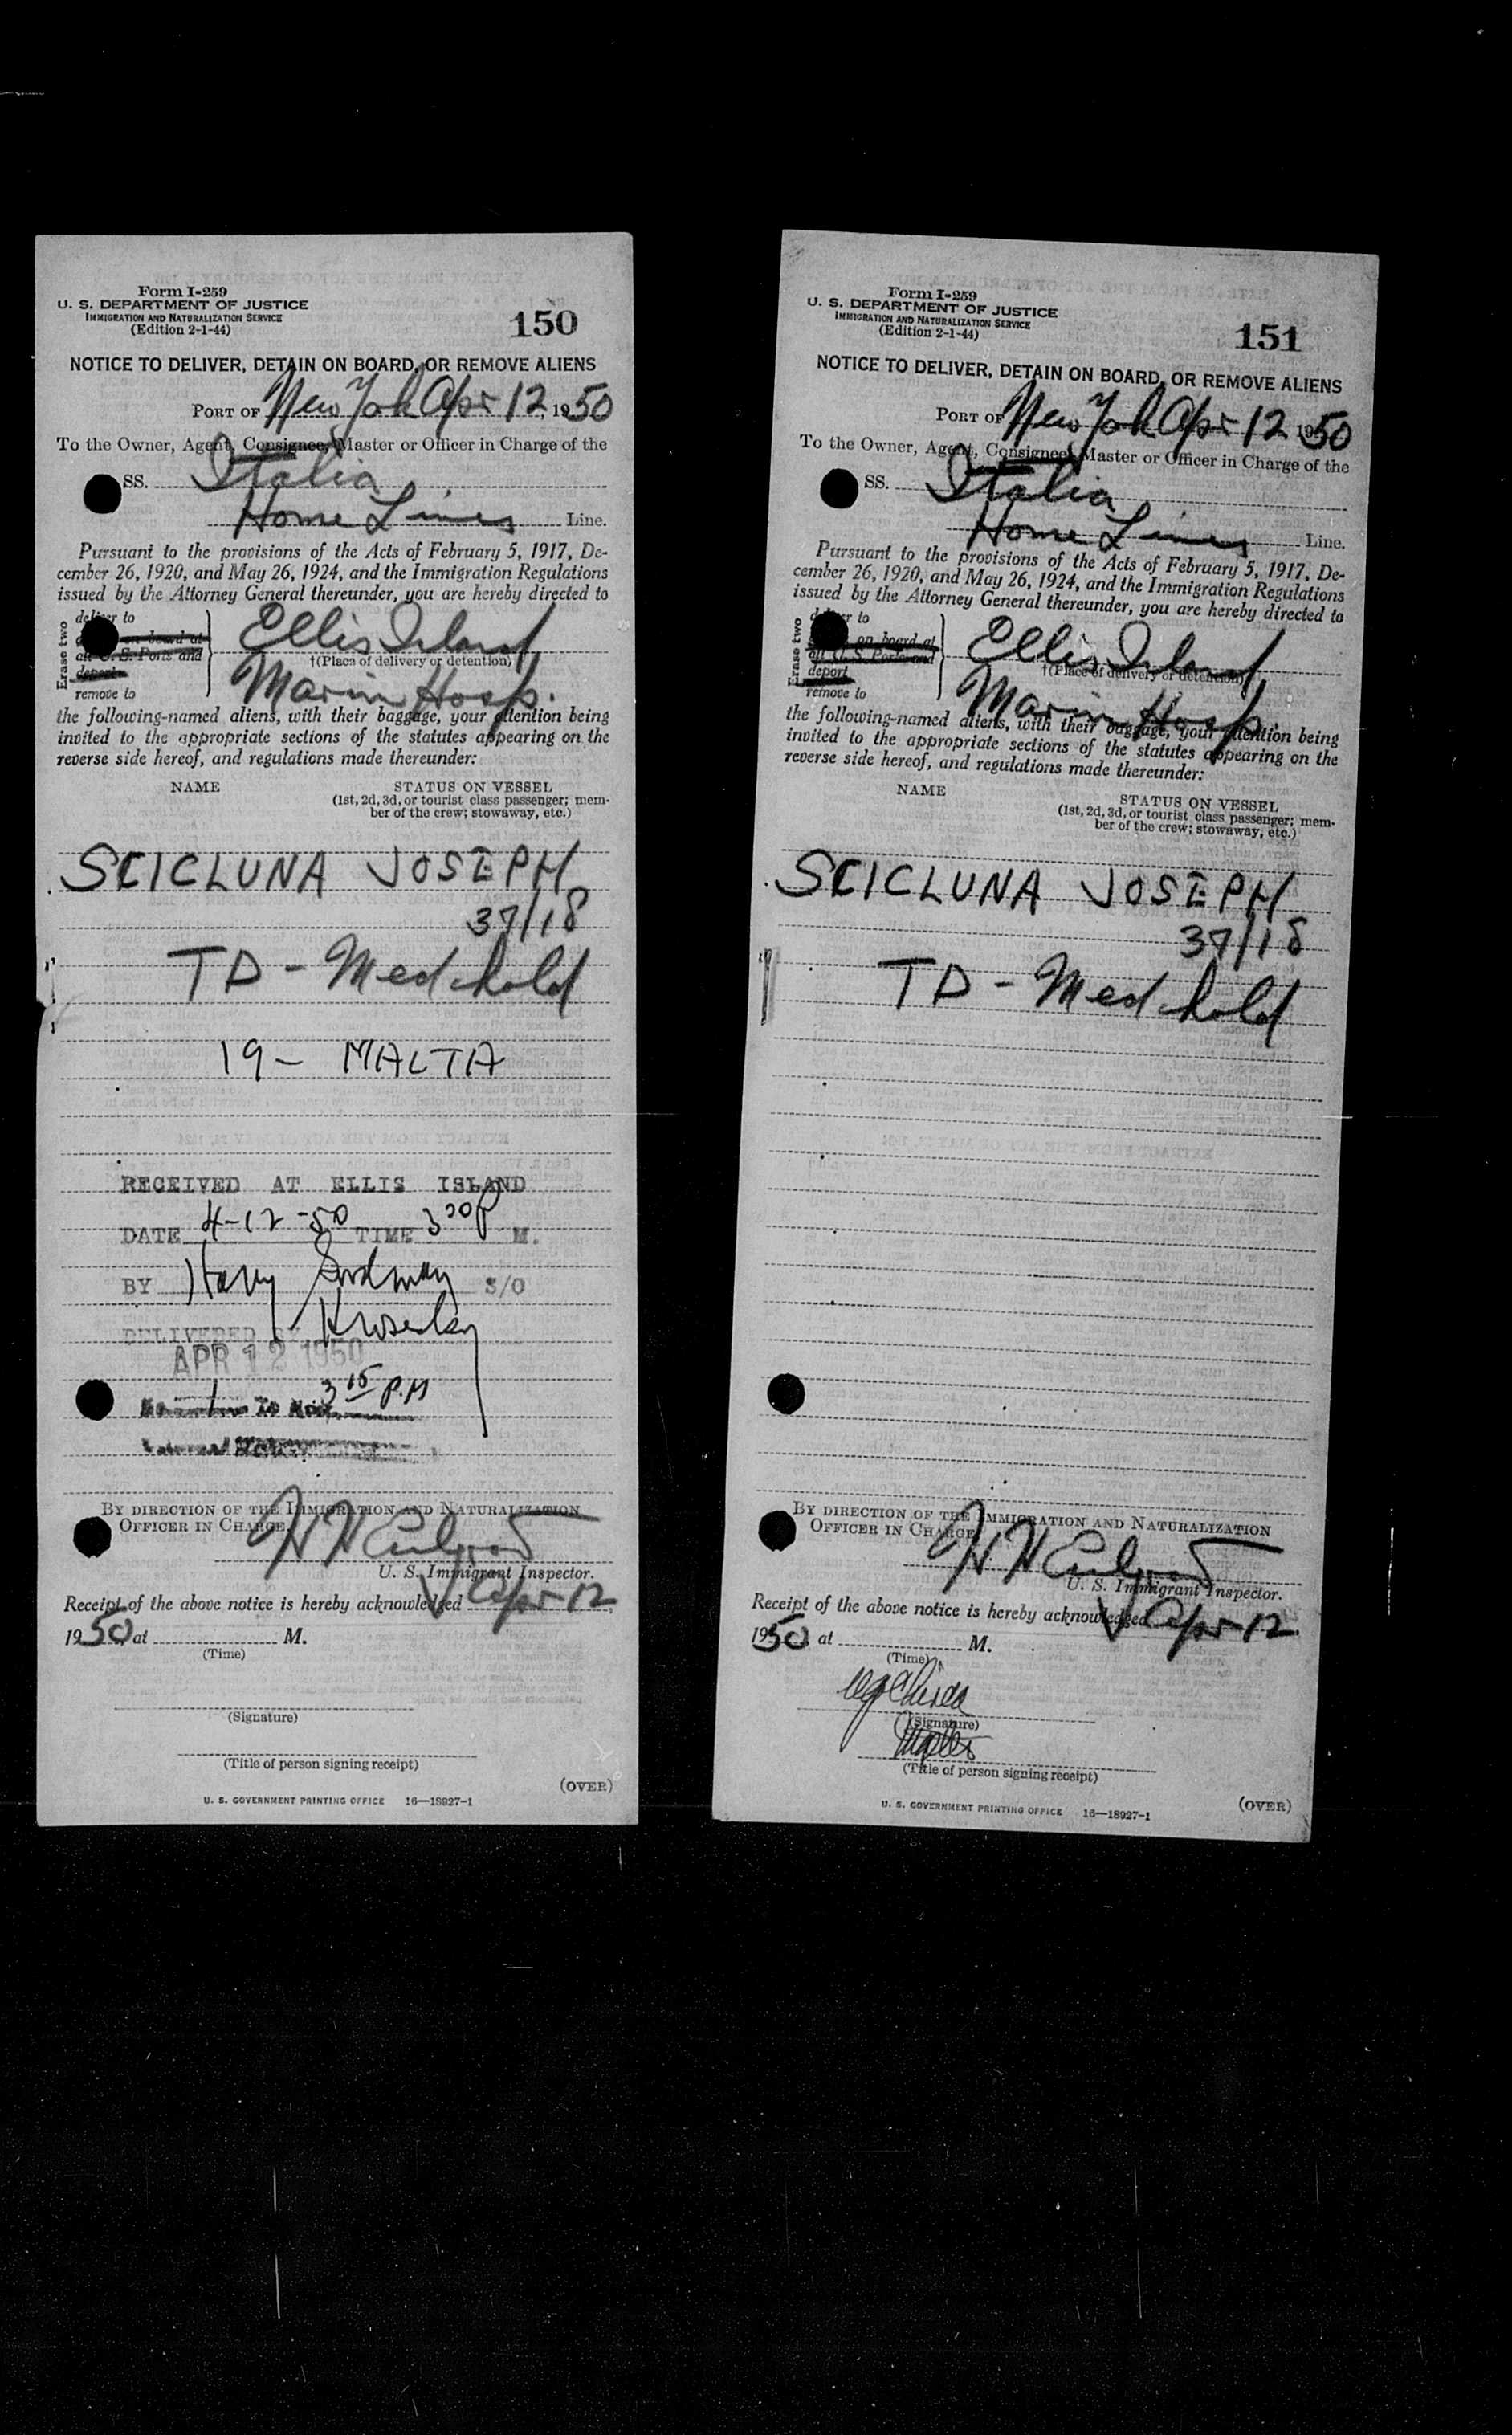 Form I-259
U. S. DEPARTMENT OF JUSTICE
IMMIGRATION AND NATURALIZATION SERVICE
(Edition 2-1-44)
150
NOTICE TO DELIVER, DETAIN ON BOARD, OR REMOVE ALIENS
PORT OF New York Apr 12, 1950
To the Owner, Agent, Consignee, Master or Officer in Charge of the
SS. Italia
Home Lines Line.
Pursuant to the provisions of the Acts of February 5, 1917, De-
cember 26, 1920, and May 26, 1924, and the Immigration Regulations
issued by the Attorney General thereunder, you are hereby directed to
Erase two
deliver to
on board at
all U. S. Ports and
deport
remove to
Ellis Island
†(Place of delivery or detention)
Marin Hosp.
the following-named aliens, with their baggage, your attention being
invited to the appropriate sections of the statutes appearing on the
reverse side hereof, and regulations made thereunder:
NAME
STATUS ON VESSEL
(1st, 2d, 3d, or tourist class passenger; mem-
ber of the crew; stowaway, etc.)
SCICLUNA JOSEPH
37/18
TD - Med hold
19 - MALTA
RECEIVED AT ELLIS ISLAND
DATE 4-12-50 TIME 3 30 P M.
BY Harry S/O
DELIVERED
APR 12 1950
3 15 P.M
BY DIRECTION OF THE IMMIGRATION AND NATURALIZATION
OFFICER IN CHARGE.
U. S. Immigrant Inspector.
Receipt of the above notice is hereby acknowledged Apr 12,
1950 at M.
(Time)
(Signature)
(Title of person signing receipt)
(OVER)
U. S. GOVERNMENT PRINTING OFFICE 16—18927-1
Form I-259
U. S. DEPARTMENT OF JUSTICE
IMMIGRATION AND NATURALIZATION SERVICE
(Edition 2-1-44)
151
NOTICE TO DELIVER, DETAIN ON BOARD, OR REMOVE ALIENS
PORT OF New York Apr 12, 1950
To the Owner, Agent, Consignee, Master or Officer in Charge of the
SS. Italia
Home Lines Line.
Pursuant to the provisions of the Acts of February 5, 1917, De-
cember 26, 1920, and May 26, 1924, and the Immigration Regulations
issued by the Attorney General thereunder, you are hereby directed to
Erase two
deliver to
on board at
all U. S. Ports and
deport
remove to
Ellis Island
†(Place of delivery or detention)
Marin Hosp.
the following-named aliens, with their baggage, your attention being
invited to the appropriate sections of the statutes appearing on the
reverse side hereof, and regulations made thereunder:
NAME
STATUS ON VESSEL
(1st, 2d, 3d, or tourist class passenger; mem-
ber of the crew; stowaway, etc.)
SCICLUNA JOSEPH
37/18
TD - Med hold
BY DIRECTION OF THE IMMIGRATION AND NATURALIZATION
OFFICER IN CHARGE
U. S. Immigrant Inspector.
Receipt of the above notice is hereby acknowledged Apr 12
1950 at M.
(Time)
(Signature)
(Title of person signing receipt)
(OVER)
U. S. GOVERNMENT PRINTING OFFICE 16—18927-1